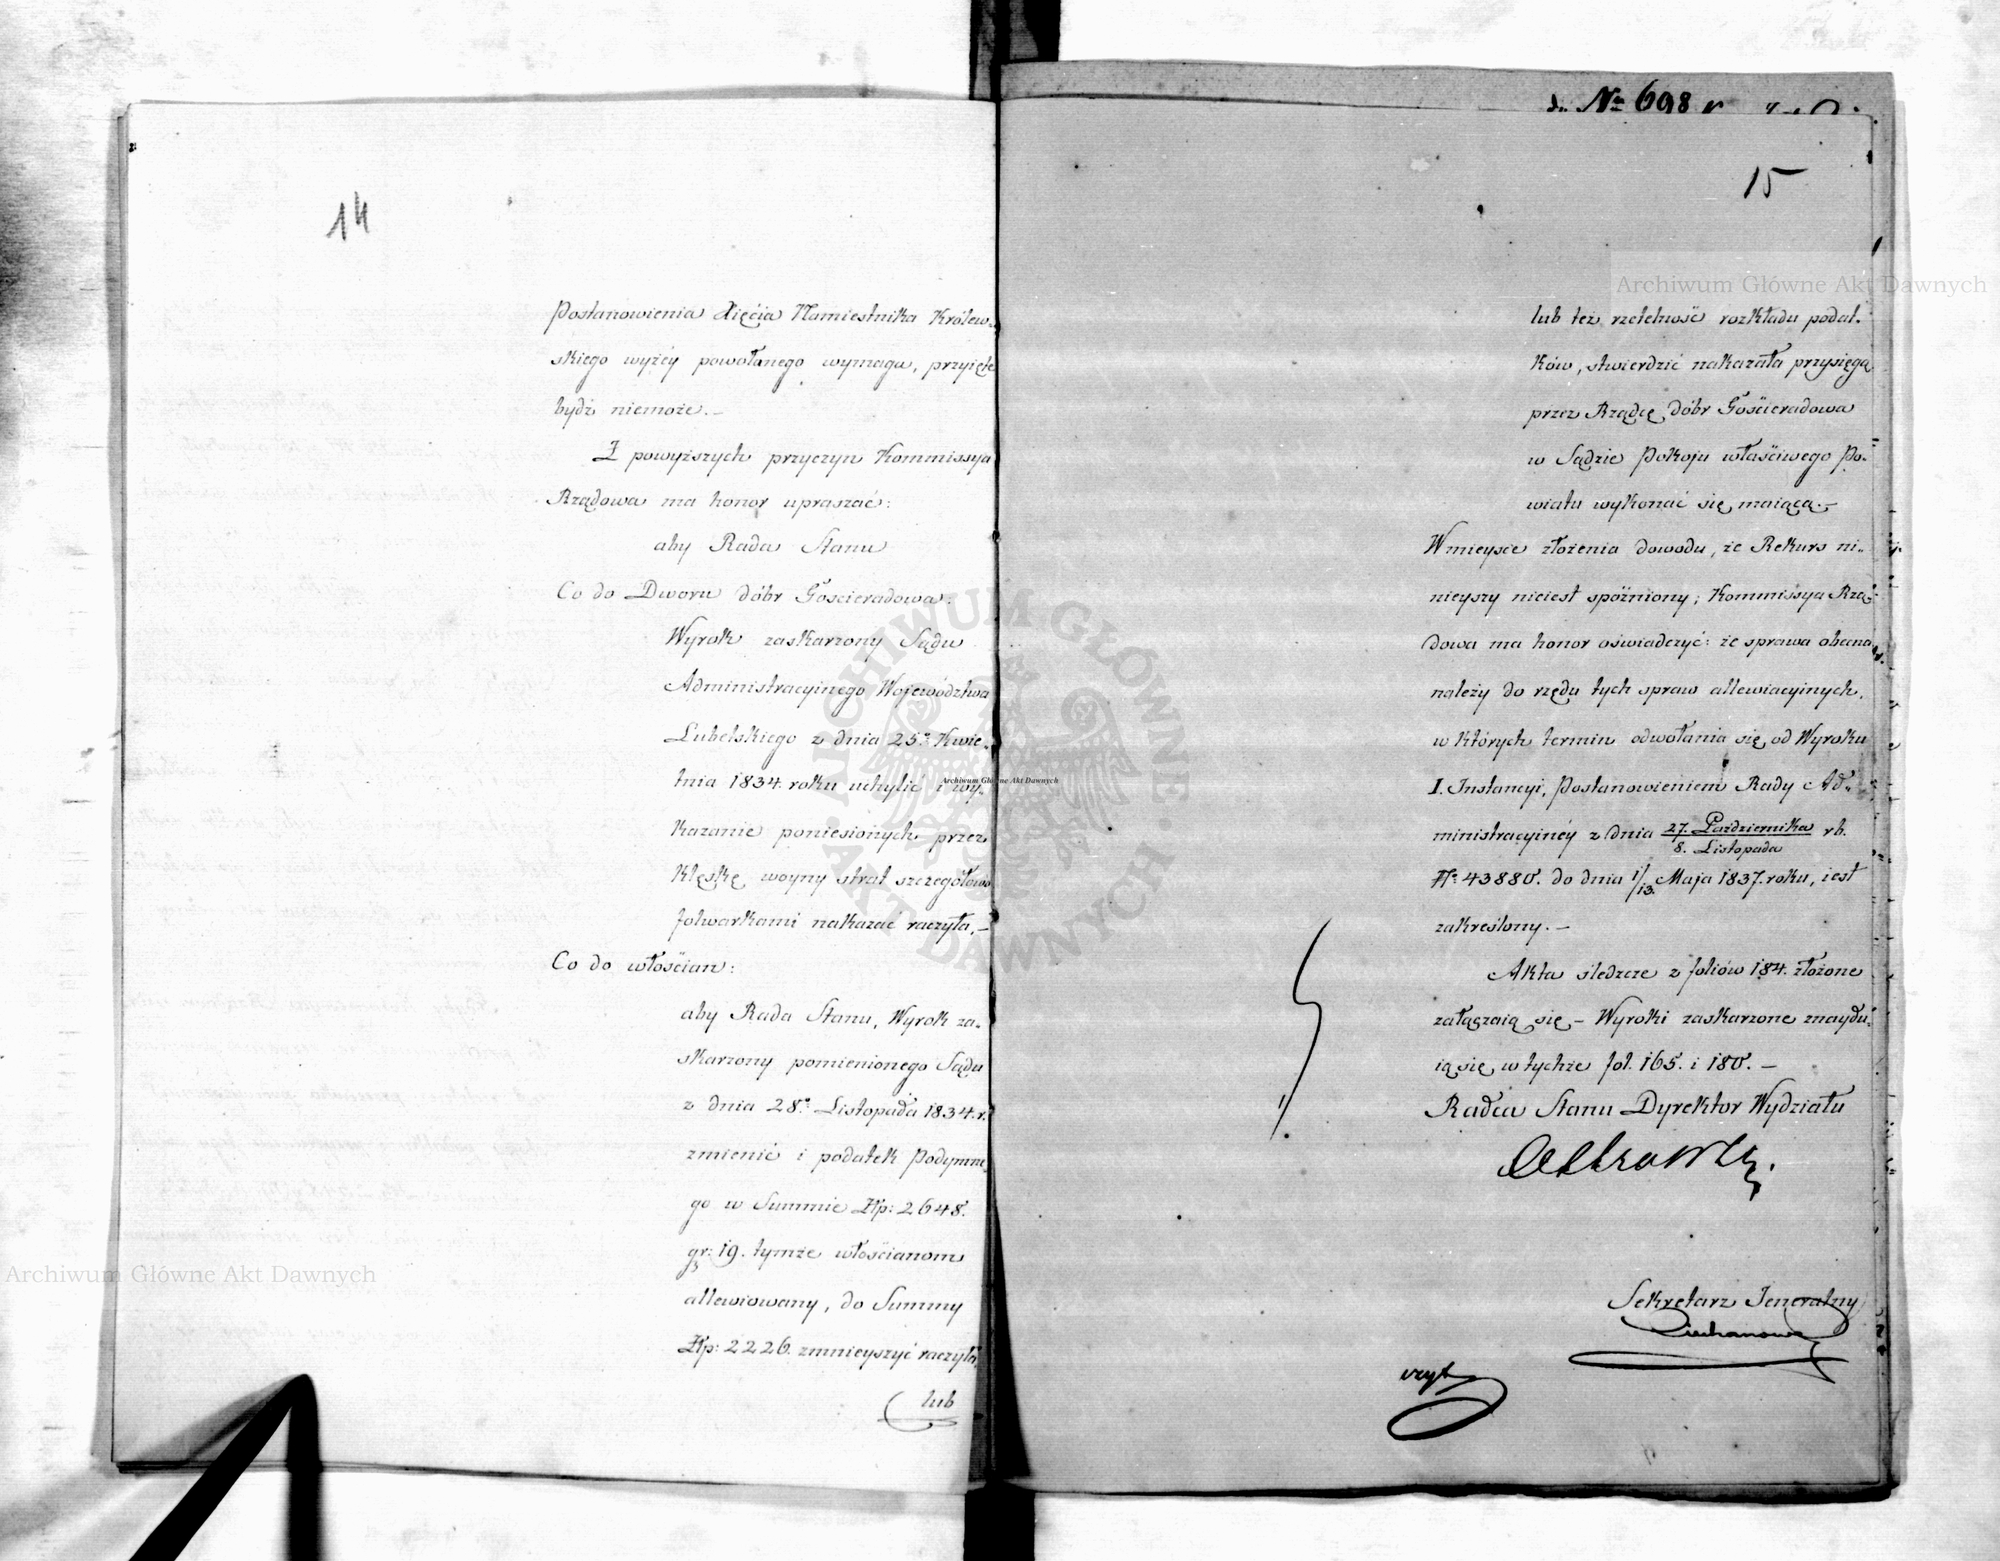 14
Postanowienia Xięcia Namiestnika Królew-
skiego wyżéy powołanego wymaga, przyięte
bydź niemoże.-
Z powyższych przyczyn Kommissya
Rządowa ma honor upraszać:
aby Rada Stanu
Co do Dworu dóbr Gościeradowa.
Wyrok zaskarzony Sądu
Administracyinego Województwa
Lubelskiego z dnia 25. Kwie-
tnia 1834. roku uchylić i wy-
kazanie poniesionych przez
Klęskę woyny strat szczegółowo
folwarkami nakazać raczyła,-
Co do włościan:
aby Rada Stanu, Wyrok za-
skarzony pomienionego Sądu
z dnia 28. Listopada 1834 r.
zmienić i podatek Podymne-
go w Summie Złp: 2648.
gr: 19. tymże włościanom
allewiowany, do Summy
Złp: 2226. zmnieyszyć raczyła,
lub
do Nr 698
15
lub też rzetelność rozkładu podat-
ków, stwierdzić nakazała przysięgą
przez Rządcę dóbr Gościeradowa
w Sądzie Pokoju właściwego Po-
wiatu wykonać się maiącą.-
W mieysce złożenia dowodu, że Rekurs ni-
nieyszy nieiest spóźniony; Kommissya Rzą-
dowa ma honor oświadczyć: że sprawa obecna
należy do rzędu tych spraw allewiacyinych,
w których termin odwołania się od Wyroku
I. Instancyi, Postanowieniem Rady Ad-
ministracyinéy z dnia 27. Października / 8. Listopada rb.
Nr 43880. do dnia 1/13. Maja 1837. roku, iest
zakreślony.-
Akta śledcze z foliów 184. złożone
załączaią się - Wyroki zaskarzone znaydu-
ią się w tychże fol. 165. i 180.-
Radca Stanu Dyrektor Wydziału
Sekretarz Jeneralny
Archiwum Główne Akt Dawnych
Archiwum Główne Akt Dawnych
Archiwum Główne Akt Dawnych
ARCHIWUM GŁÓWNE
AKT DAWNYCH